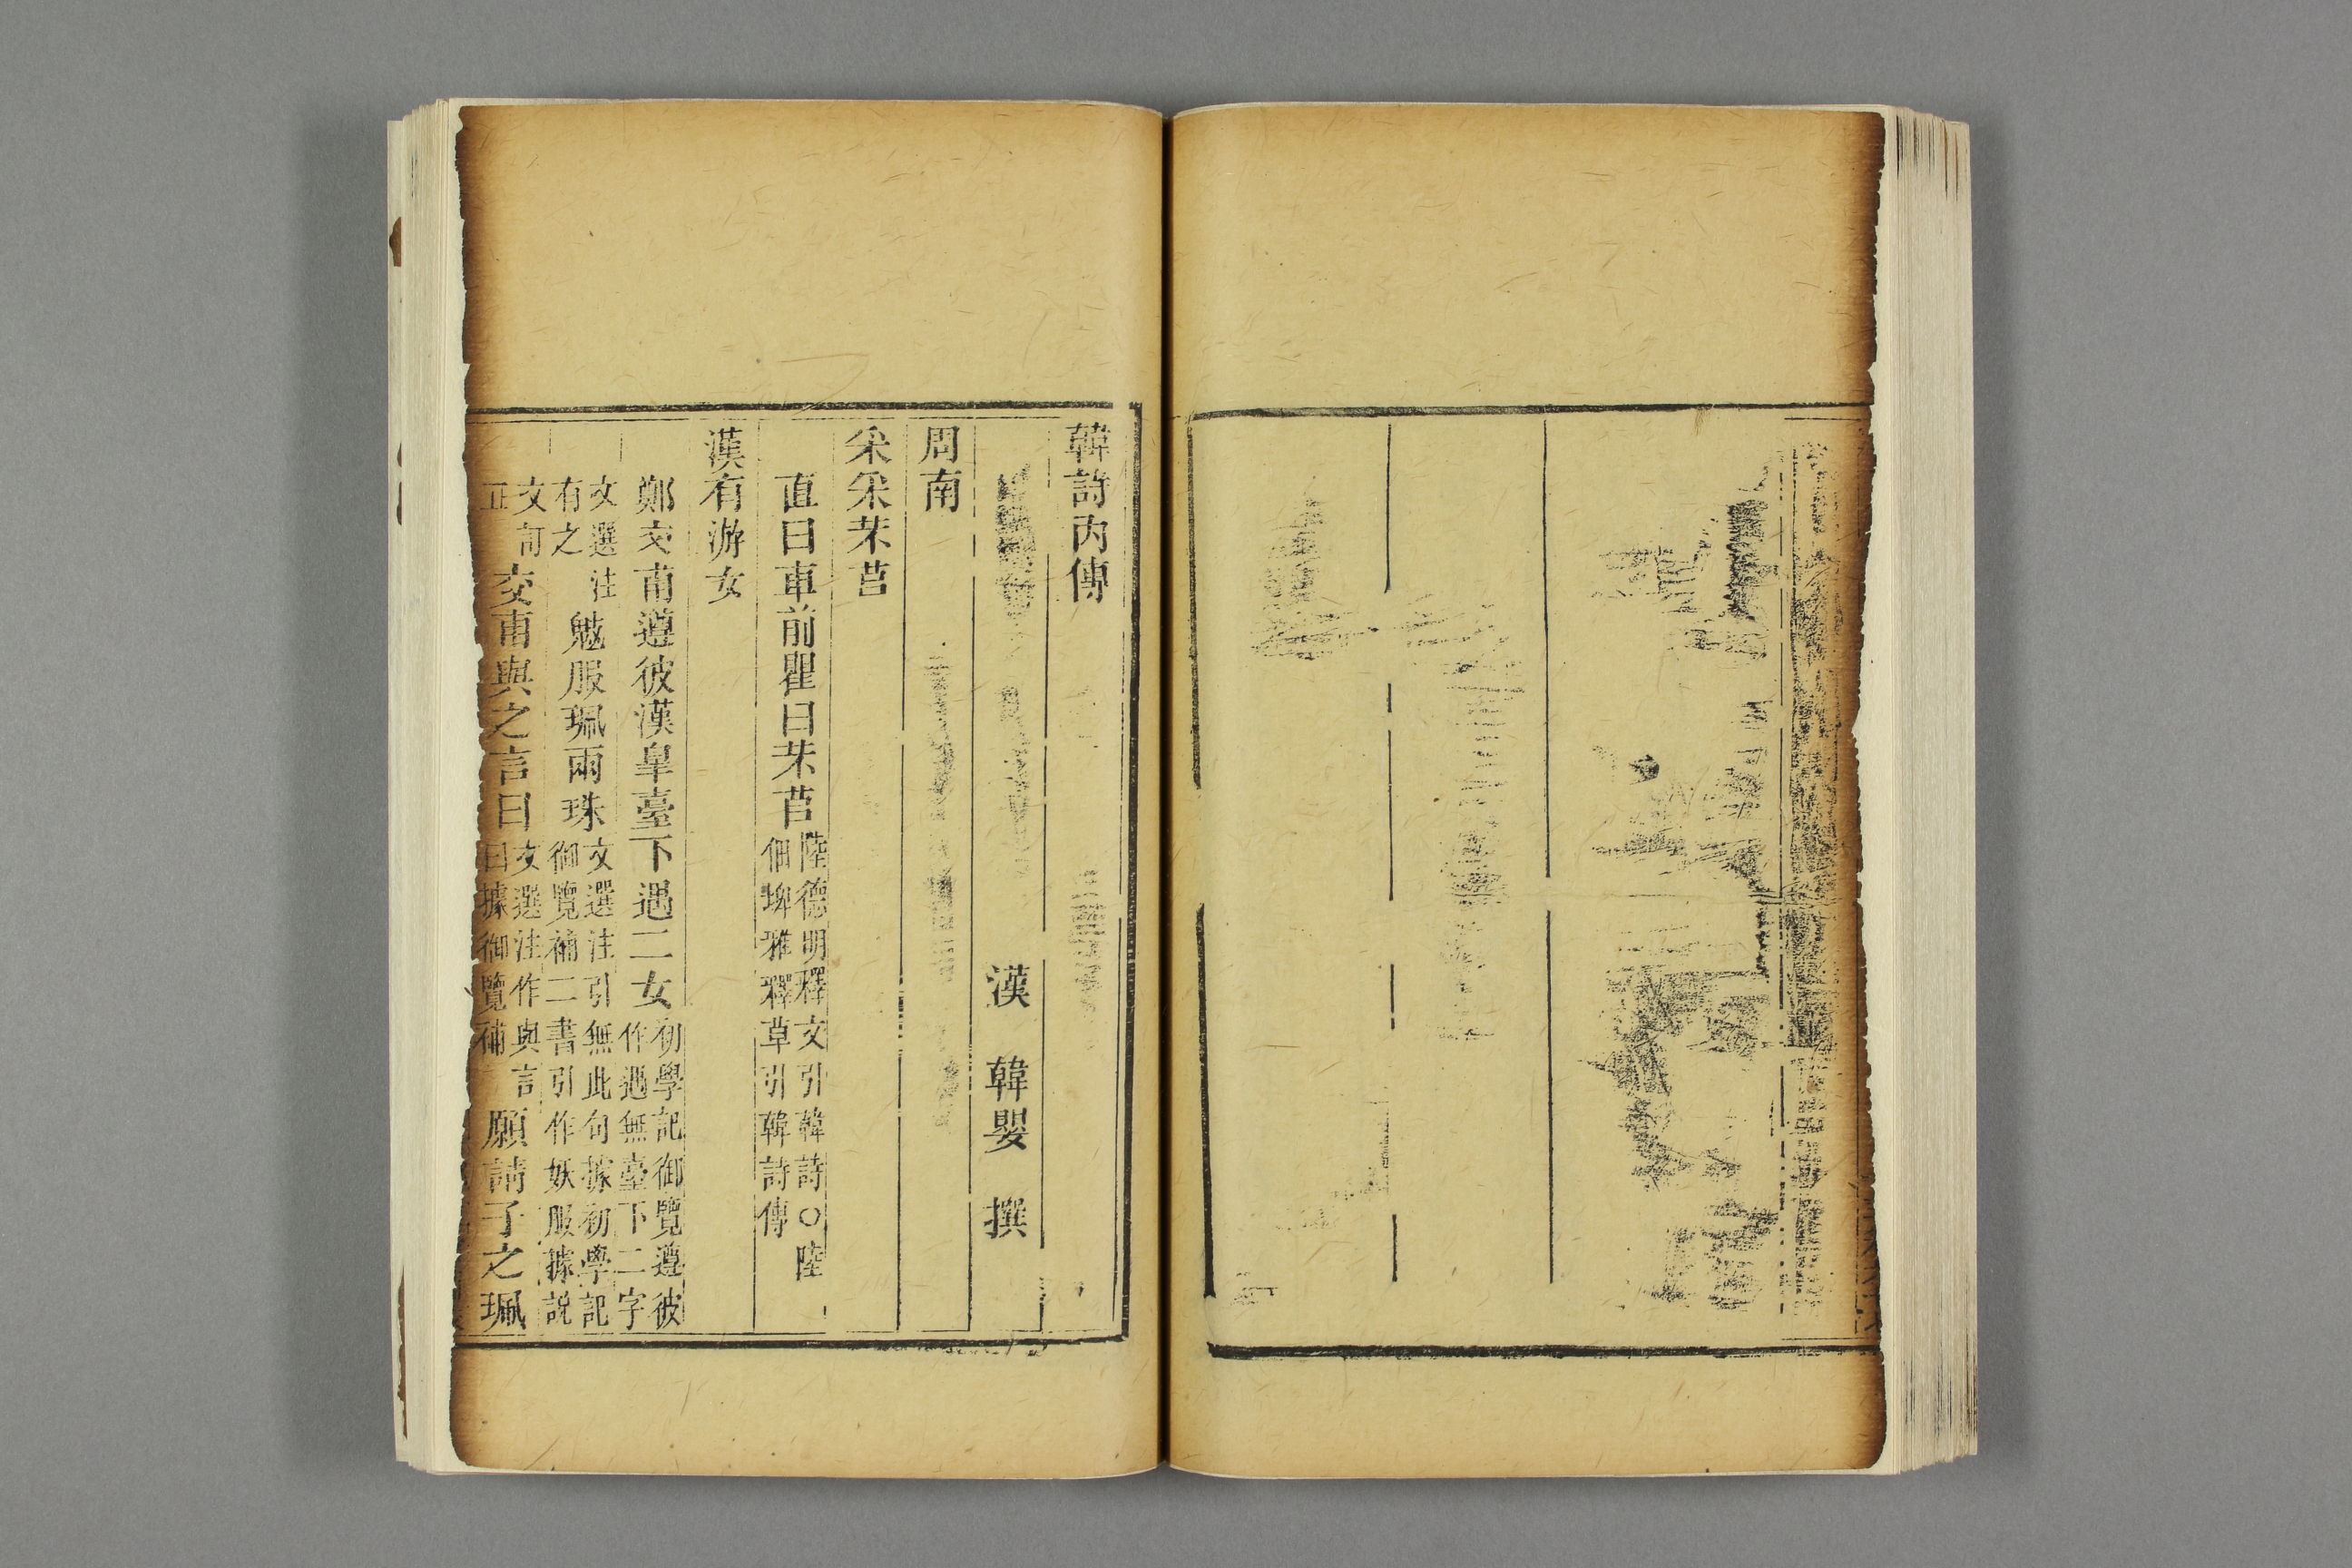 韓詩內傳
漢　韓嬰　撰
周南
采采芣苢
直曰車前瞿曰芣苢陸德明釋文引韓詩○陸佃埤雅釋草引韓詩傳
漢有游女
鄭交甫遵彼漢皋臺下遇二女初學記御覽遵彼作遇無臺下二字
文選注有之魃服珮兩珠文選注引無此句據初學記御覽補二書引作妖服據說
文訂正交甫與之言曰文選注作與言曰據御覽補願請子之珮